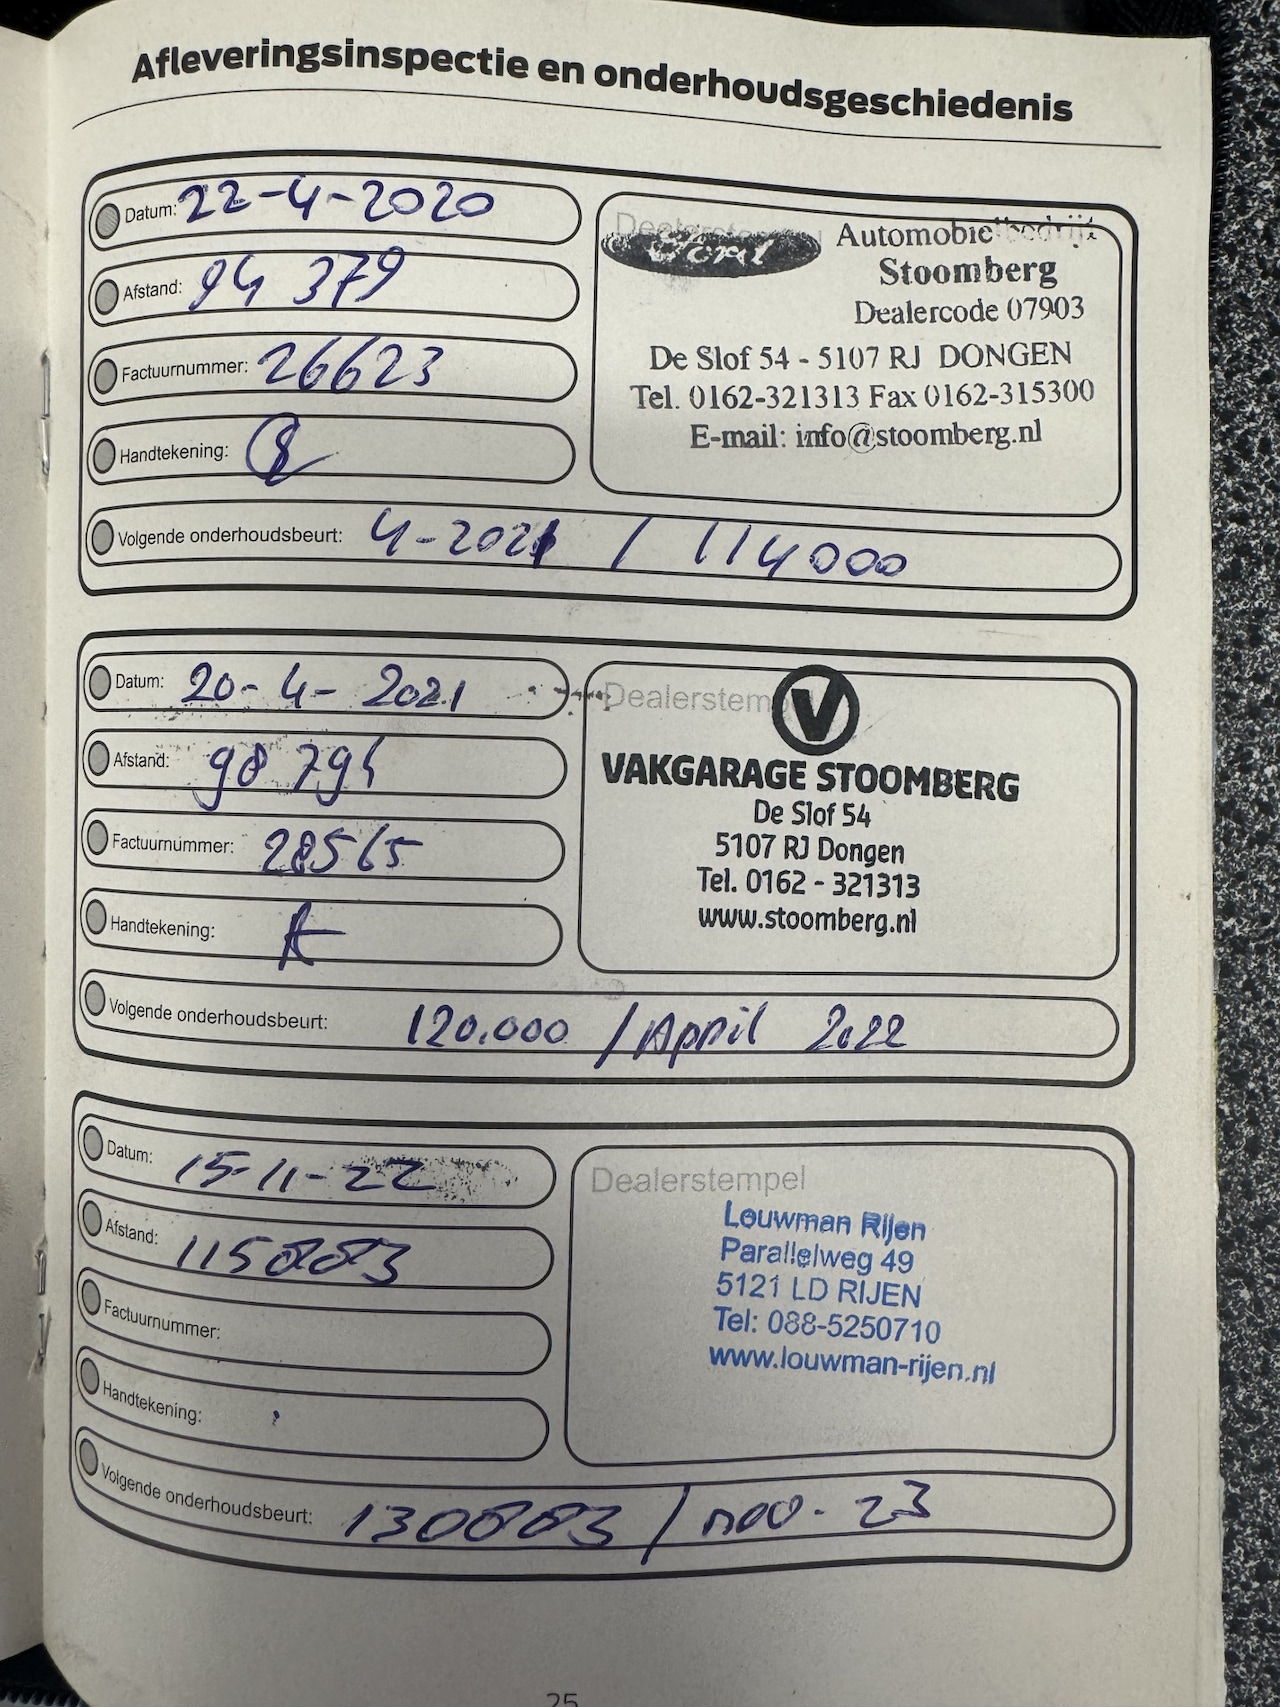 Afleveringsinspectie en onderhoudsgeschiedenis
Datum: 22-4-2020
Afstand: 94 379
Factuurnummer: 26623
Handtekening:
Volgende onderhoudsbeurt: 4-2021 / 114000
Dealerstempel
Ford
Automobielbedrijf
Stoomberg
Dealercode 07903
De Slof 54 - 5107 RJ DONGEN
Tel. 0162-321313 Fax 0162-315300
E-mail: info@stoomberg.nl
Datum: 20-4-2021
Afstand: 98 794
Factuurnummer: 28565
Handtekening:
Volgende onderhoudsbeurt: 120.000 / April 2022
Dealerstempel
V
VAKGARAGE STOOMBERG
De Slof 54
5107 RJ Dongen
Tel. 0162 - 321313
www.stoomberg.nl
Datum: 15-11-22
Afstand: 115003
Factuurnummer:
Handtekening:
Volgende onderhoudsbeurt: / nov. 23
Dealerstempel
Louwman Rijen
Parallelweg 49
5121 LD RIJEN
Tel: 088-5250710
www.louwman-rijen.nl
25